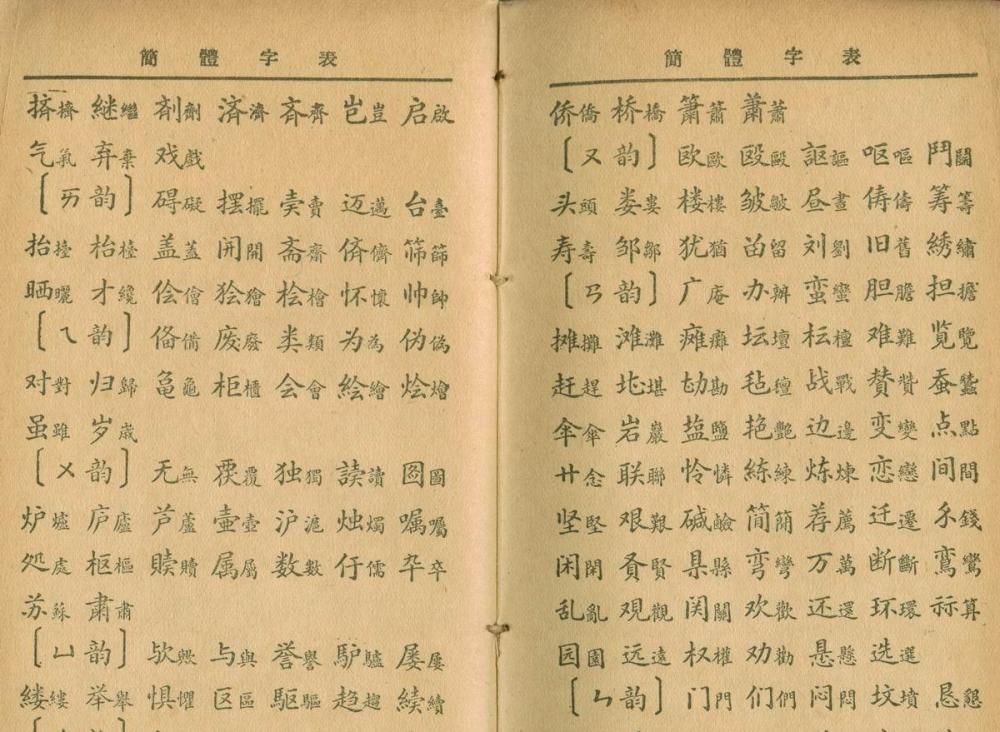 簡體字表
挤擠 継繼 剤劑 済濟 斉齊 岂豈 启啟
气氣 弃棄 戏戲
〔ㄞ韵〕 碍礙 摆擺 卖賣 迈邁 台臺
抬擡 枱檯 盖蓋 开開 斋齋 侪儕 筛篩
晒曬 才纔 侩儈 狯獪 桧檜 怀懷 帅帥
〔ㄟ韵〕 俻備 废廢 类類 为為 伪偽
对對 归歸 亀龜 柜櫃 会會 絵繪 烩燴
虽雖 岁歲
〔ㄨ韵〕 无無 覆 独獨 読讀 図圖
炉爐 庐廬 芦蘆 壷壺 沪滬 烛燭 嘱囑
処處 枢樞 赎贖 属屬 数數 儒 卆卒
苏蘇 粛肅
〔ㄩ韵〕 欤歟 与與 誉譽 驴驢 屡屢
缕縷 举舉 惧懼 区區 駆驅 趋趨 続續
簡體字表
侨僑 桥橋 箫簫 萧蕭
〔ㄡ韵〕 欧歐 殴毆 謳 呕嘔 鬥鬭
头頭 娄婁 楼樓 皱皺 昼晝 俦儔 筹籌
寿壽 邹鄒 犹猶 畄留 刘劉 旧舊 綉繡
〔ㄢ韵〕 广庵 办辦 蛮蠻 胆膽 担擔
摊攤 滩灘 瘫癱 坛壇 枟檀 难難 览覽
赶趕 堪 勘 毡氈 战戰 賛贊 蚕蠶
伞傘 岩巖 塩鹽 艳艷 边邊 变變 点點
廿念 联聯 怜憐 練練 炼煉 恋戀 间間
坚堅 艰艱 碱鹼 简簡 荐薦 迁遷 錢
闲閑 贤賢 県縣 弯彎 万萬 断斷 鸾鸞
乱亂 观觀 関關 欢歡 还還 环環 祘算
园園 远遠 权權 劝勸 悬懸 选選
〔ㄣ韵〕 门門 们們 闷悶 坟墳 恳懇